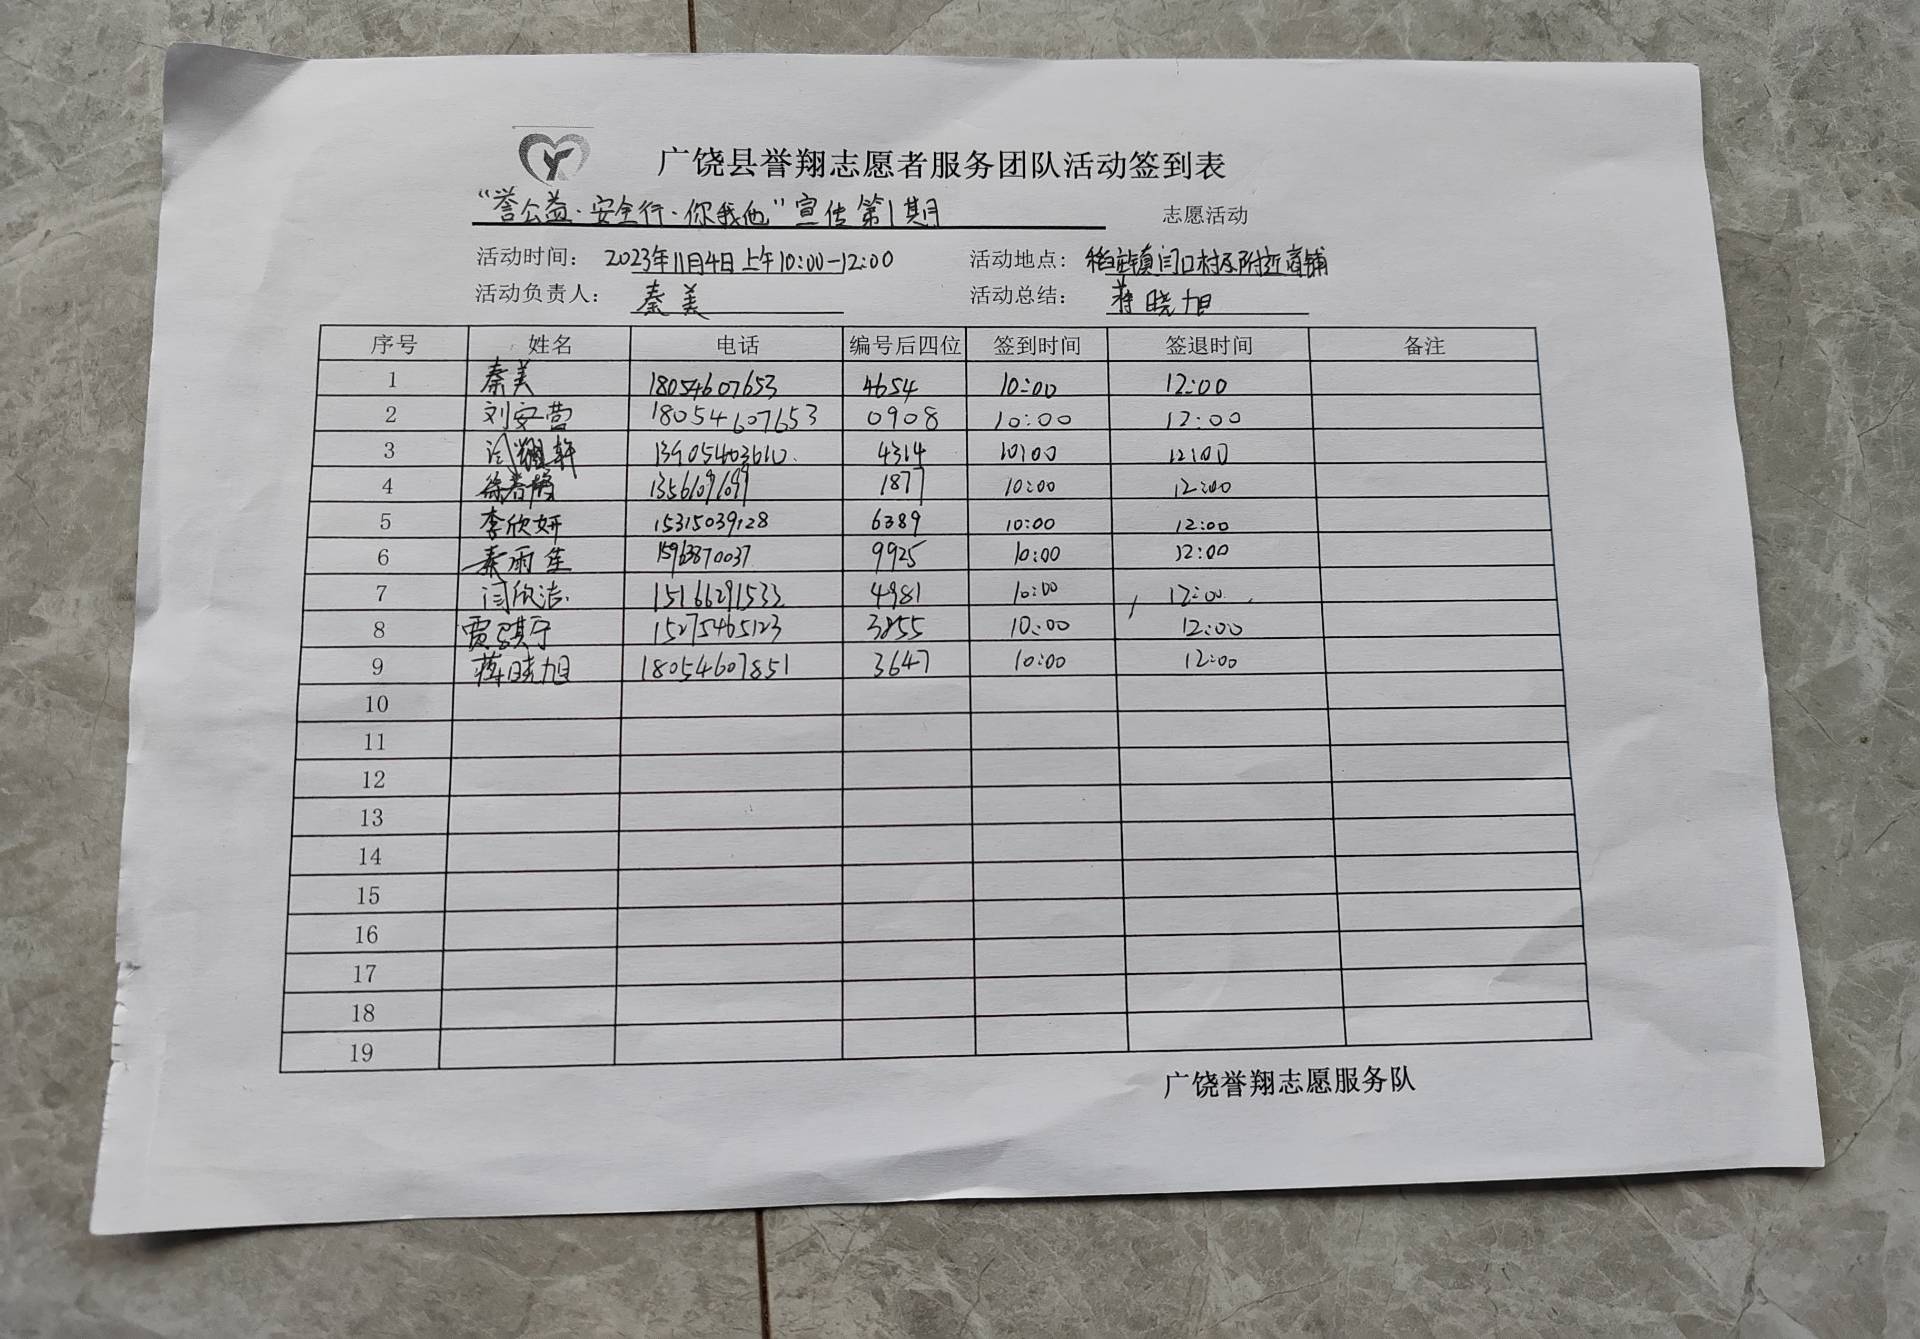 广饶县誉翔志愿者服务团队活动签到表
“誉公益·安全行·你我他”宣传第1期 志愿活动
活动时间: 2023年11月4日上午10:00-12:00 活动地点: 稻庄镇闫口村及附近商铺
活动负责人: 秦美 活动总结: 蒋晓旭
序号 姓名 电话 编号后四位 签到时间 签退时间 备注
1 秦美 18054607653 4654 10:00 12:00
2 刘安营 18054607653 0908 10:00 12:00
3 闫耀轩 13905403610 4314 10:00 12:00
4 1877 10:00 12:00
5 李欣妍 15315039128 6389 10:00 12:00
6 秦雨生 15963870037 9925 10:00 12:00
7 闫欣洁 15166291533 4981 10:00 12:00
8 贾骐宁 15275465123 3855 10:00 12:00
9 蒋晓旭 18054607851 3647 10:00 12:00
10
11
12
13
14
15
16
17
18
19
广饶誉翔志愿服务队